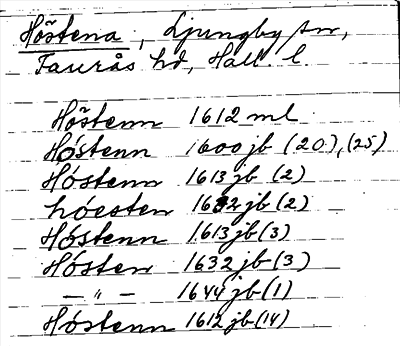 Höstena, Ljungby sn,
Faurås hd, Hall. l.
Höstenn 1612 ml
Hóstenn 1600 jb (20), (25)
Hóstenn 1613 jb (2)
hóesten 1632 jb (2)
Hóstenn 1613 jb (3)
Hósten 1632 jb (3)
— " — 1644 jb (1)
Hóstenn 1612 jb (14)